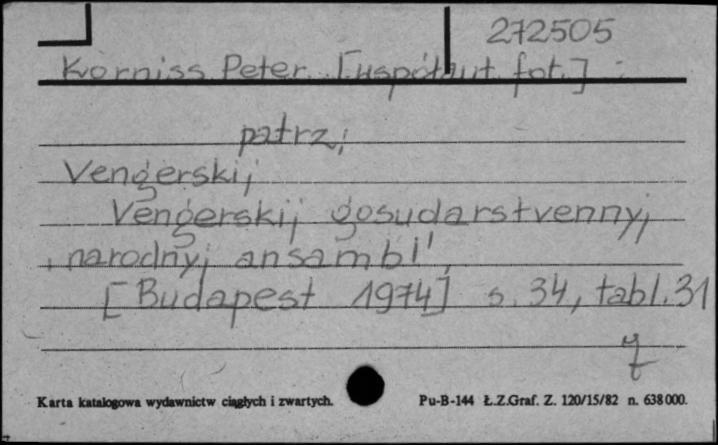 272505
Korniss Peter [współaut. fot.] :
patrz:
Vengerskij
Vengerskij gosudarstvennyj
narodnyj ansambl',
[Budapest 1974] s. 34, tabl. 31
Karta katalogowa wydawnictw ciągłych i zwartych.
Pu-B-144 Ł.Z.Graf. Z. 120/15/82 n. 638000.